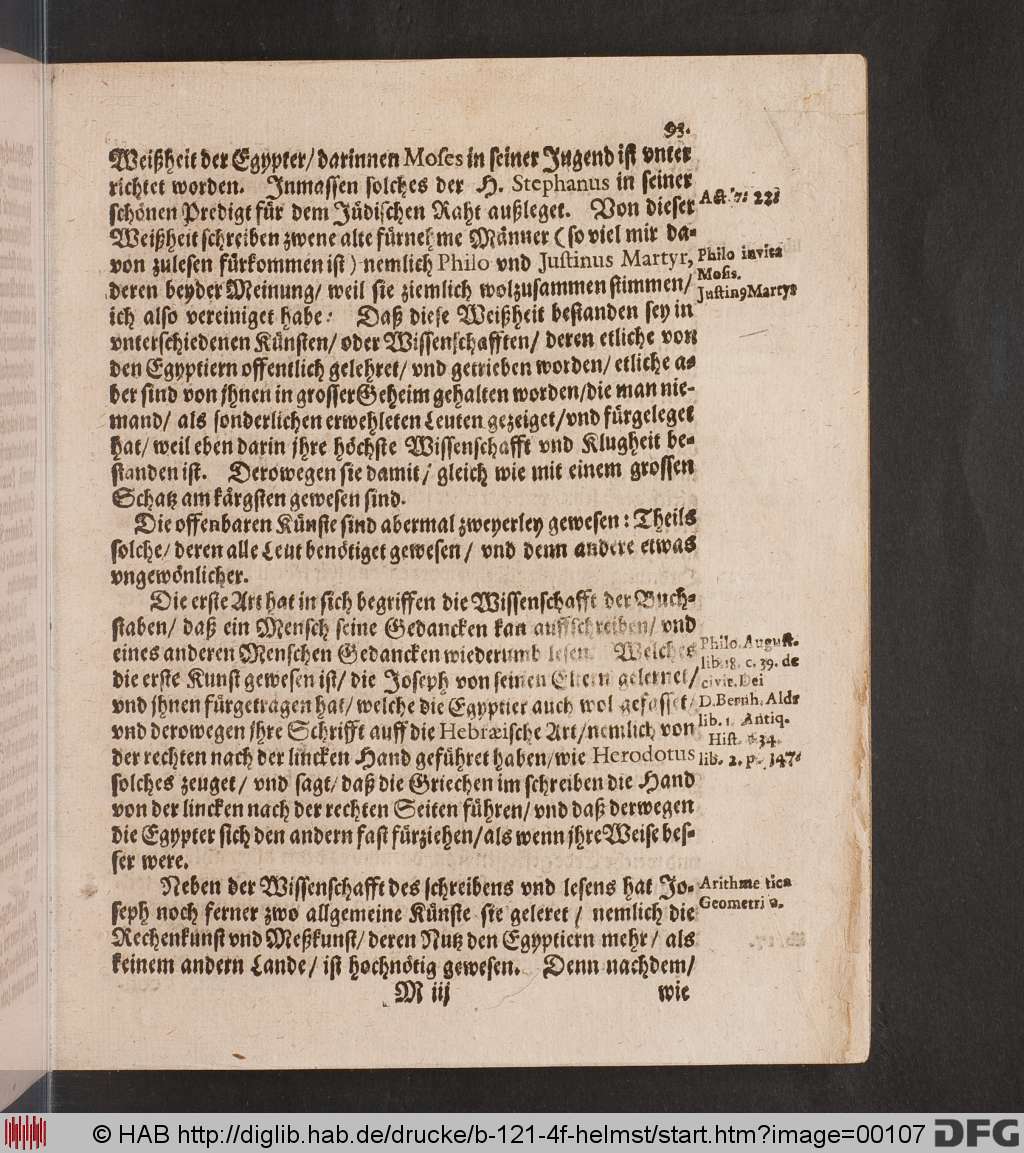 93.
Weißheit der Egypter/ darinnen Moses in seiner Jugend ist vnter
richtet worden. Inmassen solches der H. Stephanus in seiner
schönen Predigt für dem Jüdischen Raht außleget. Von dieser
Act. 7: 22:
Weißheit schreiben zwene alte fürnehme Männer (so viel mir da-
von zulesen fürkommen ist) nemlich Philo vnd Justinus Martyr,
Philo in vita
Mosis.
deren beyder Meinung/ weil sie ziemlich wolzusammen stimmen/
Justin9 Martyr
ich also vereiniget habe: Daß diese Weißheit bestanden sey in
vnterschiedenen Künsten/ oder Wissenschafften/ deren etliche von
den Egyptiern offentlich gelehret/ vnd getrieben worden/ etliche a-
ber sind von jhnen in grosser Geheim gehalten worden/ die man nie-
mand/ als sonderlichen erwehleten Leuten gezeiget/ vnd fürgeleget
hat/ weil eben darin jhre höchste Wissenschafft vnd Klugheit be-
standen ist. Derowegen sie damit/ gleich wie mit einem grossen
Schatz am kärgsten gewesen sind.
Die offenbaren Künste sind abermal zweyerley gewesen: Theils
solche/ deren alle Leut benötiget gewesen/ vnd denn andere etwas
vngewönlicher.
Die erste Art hat in sich begriffen die Wissenschafft der Buch-
staben/ daß ein Mensch seine Gedancken kan auffschreiben/ vnd
eines anderen Menschen Gedancken wiederumb lesen. Welches
die erste Kunst gewesen ist/ die Joseph von seinen Eltern gelernet/
vnd jhnen fürgetragen hat/ welche die Egyptier auch wol gefasset/
vnd derowegen jhre Schrifft auff die Hebræische Art/ nemlich von
der rechten nach der lincken Hand geführet haben/ wie Herodotus
Philo. August.
lib. 18. c. 39. de
civit. Dei
D. Bernh. Aldr
lib. 1. Antiq.
Hist. 34.
lib. 2. p. 147:
solches zeuget/ vnd sagt/ daß die Griechen im schreiben die Hand
von der lincken nach der rechten Seiten führen/ vnd daß derwegen
die Egypter sich den andern fast fürziehen/ als wenn jhre Weise bes-
ser were.
Neben der Wissenschafft des schreibens vnd lesens hat Jo-
seph noch ferner zwo allgemeine Künste sie geleret/ nemlich die
Arithmetica
Geometria.
Rechenkunst vnd Meßkunst/ deren Nutz den Egyptiern mehr/ als
keinem andern Lande/ ist hochnötig gewesen. Denn nachdem/
M iij wie
© HAB http://diglib.hab.de/drucke/b-121-4f-helmst/start.htm?image=00107 DFG